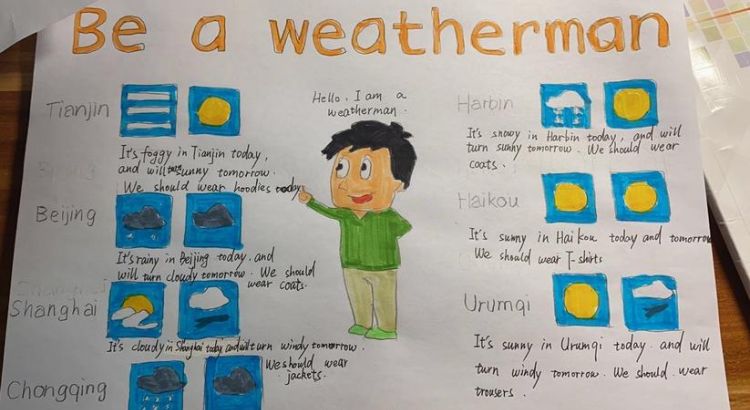 Be a weatherman
Tianjin
It's foggy in Tianjin today,
and will turn sunny tomorrow.
We should wear hoodies today
Beijing
It's rainy in Beijing today. and
will turn cloudy tomorrow. We should
wear coats.
Shanghai
It's cloudy in Shanghai today and will turn windy tomorrow.
We should wear
jackets.
Chongqing
Hello, I am a
weatherman.
Harbin
It's snowy in Harbin today, and will
turn sunny tomorrow. We should wear
coats.
Haikou
It's sunny in Haikou today and tomorrow
We should wear T-shirts
Urumqi
It's sunny in Urumqi today. and will
turn windy tomorrow. We should wear
trousers.